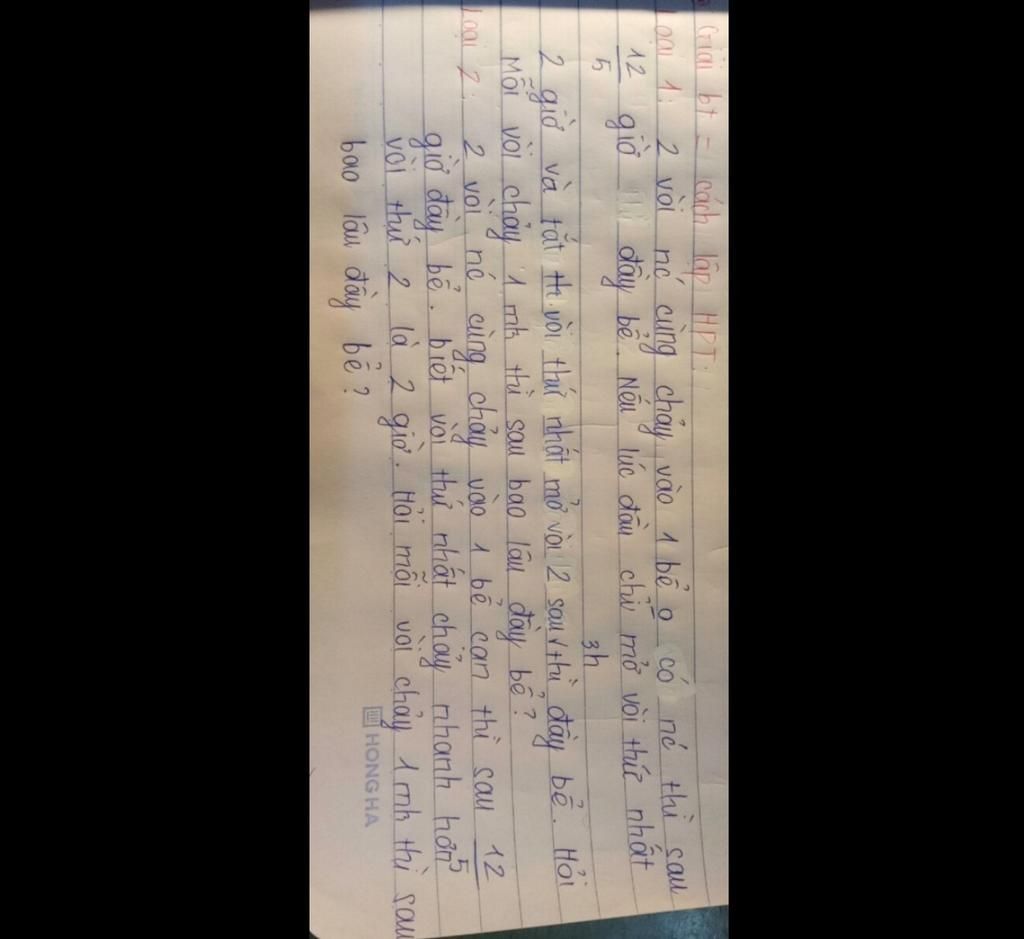 Giải bt = cách lập HPT:
Loại 1: 2 vòi nc cùng chảy vào 1 bể o có nc thì sau
12/5 giờ thì đầy bể. Nếu lúc đầu chỉ mở vòi thứ nhất
3h
2 giờ và tắt vòi thứ nhất mở vòi 2 sau thì đầy bể. Hỏi
Mỗi vòi chảy 1 mk thì sau bao lâu đầy bể?
Loại 2: 2 vòi nc cùng chảy vào 1 bể cạn thì sau 12/5
giờ đầy bể. biết vòi thứ nhất chảy nhanh hơn
vòi thứ 2 là 2 giờ. Hỏi mỗi vòi chảy 1 mk thì sau
bao lâu đầy bể?
HONG HA